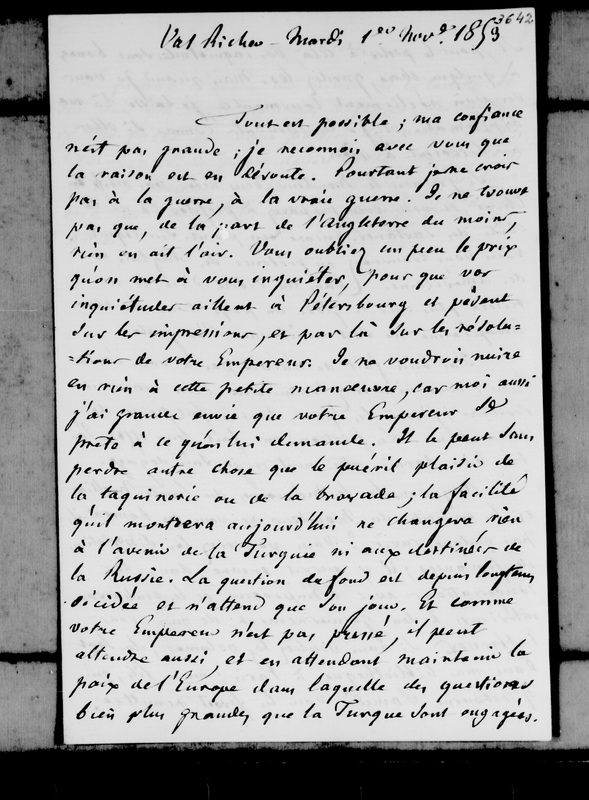 3642
Val Richer - Mardi 1er Nov. 1853
Tout est possible ; ma confiance
n'est pas grande ; je reconnois avec vous que
la raison est en déroute. Pourtant je ne crois
pas à la guerre, à la vraie guerre. Je ne trouve
pas que, de la part de l'Angleterre du moins,
rien en ait l'air. Vous oubliez un peu le prix
qu'on met à vous inquiéter, pour que vos
inquiétudes aillent à Pétersbourg et pèsent
sur les impressions, et par là sur les résolu-
-tions de votre Empereur. Je ne voudrois nuire
en rien à cette petite manœuvre, car moi aussi
j'ai grande envie que votre Empereur se
prete à ce qu'on lui demande. Il le peut sans
perdre autre chose que le puéril plaisir de
la taquinerie ou de la bravade ; la facilité
qu'il montrera aujourd'hui ne changera rien
à l'avenir de la Turquie ni aux destinées de
la Russie. La question du fond est depuis longtems
décidée et n'attend que son jour. Et comme
votre Empereur n'est pas pressé, il peut
attendre aussi, et en attendant maintenir la
paix de l'Europe dans laquelle des questions
bien plus grandes que la Turque sont engagées.